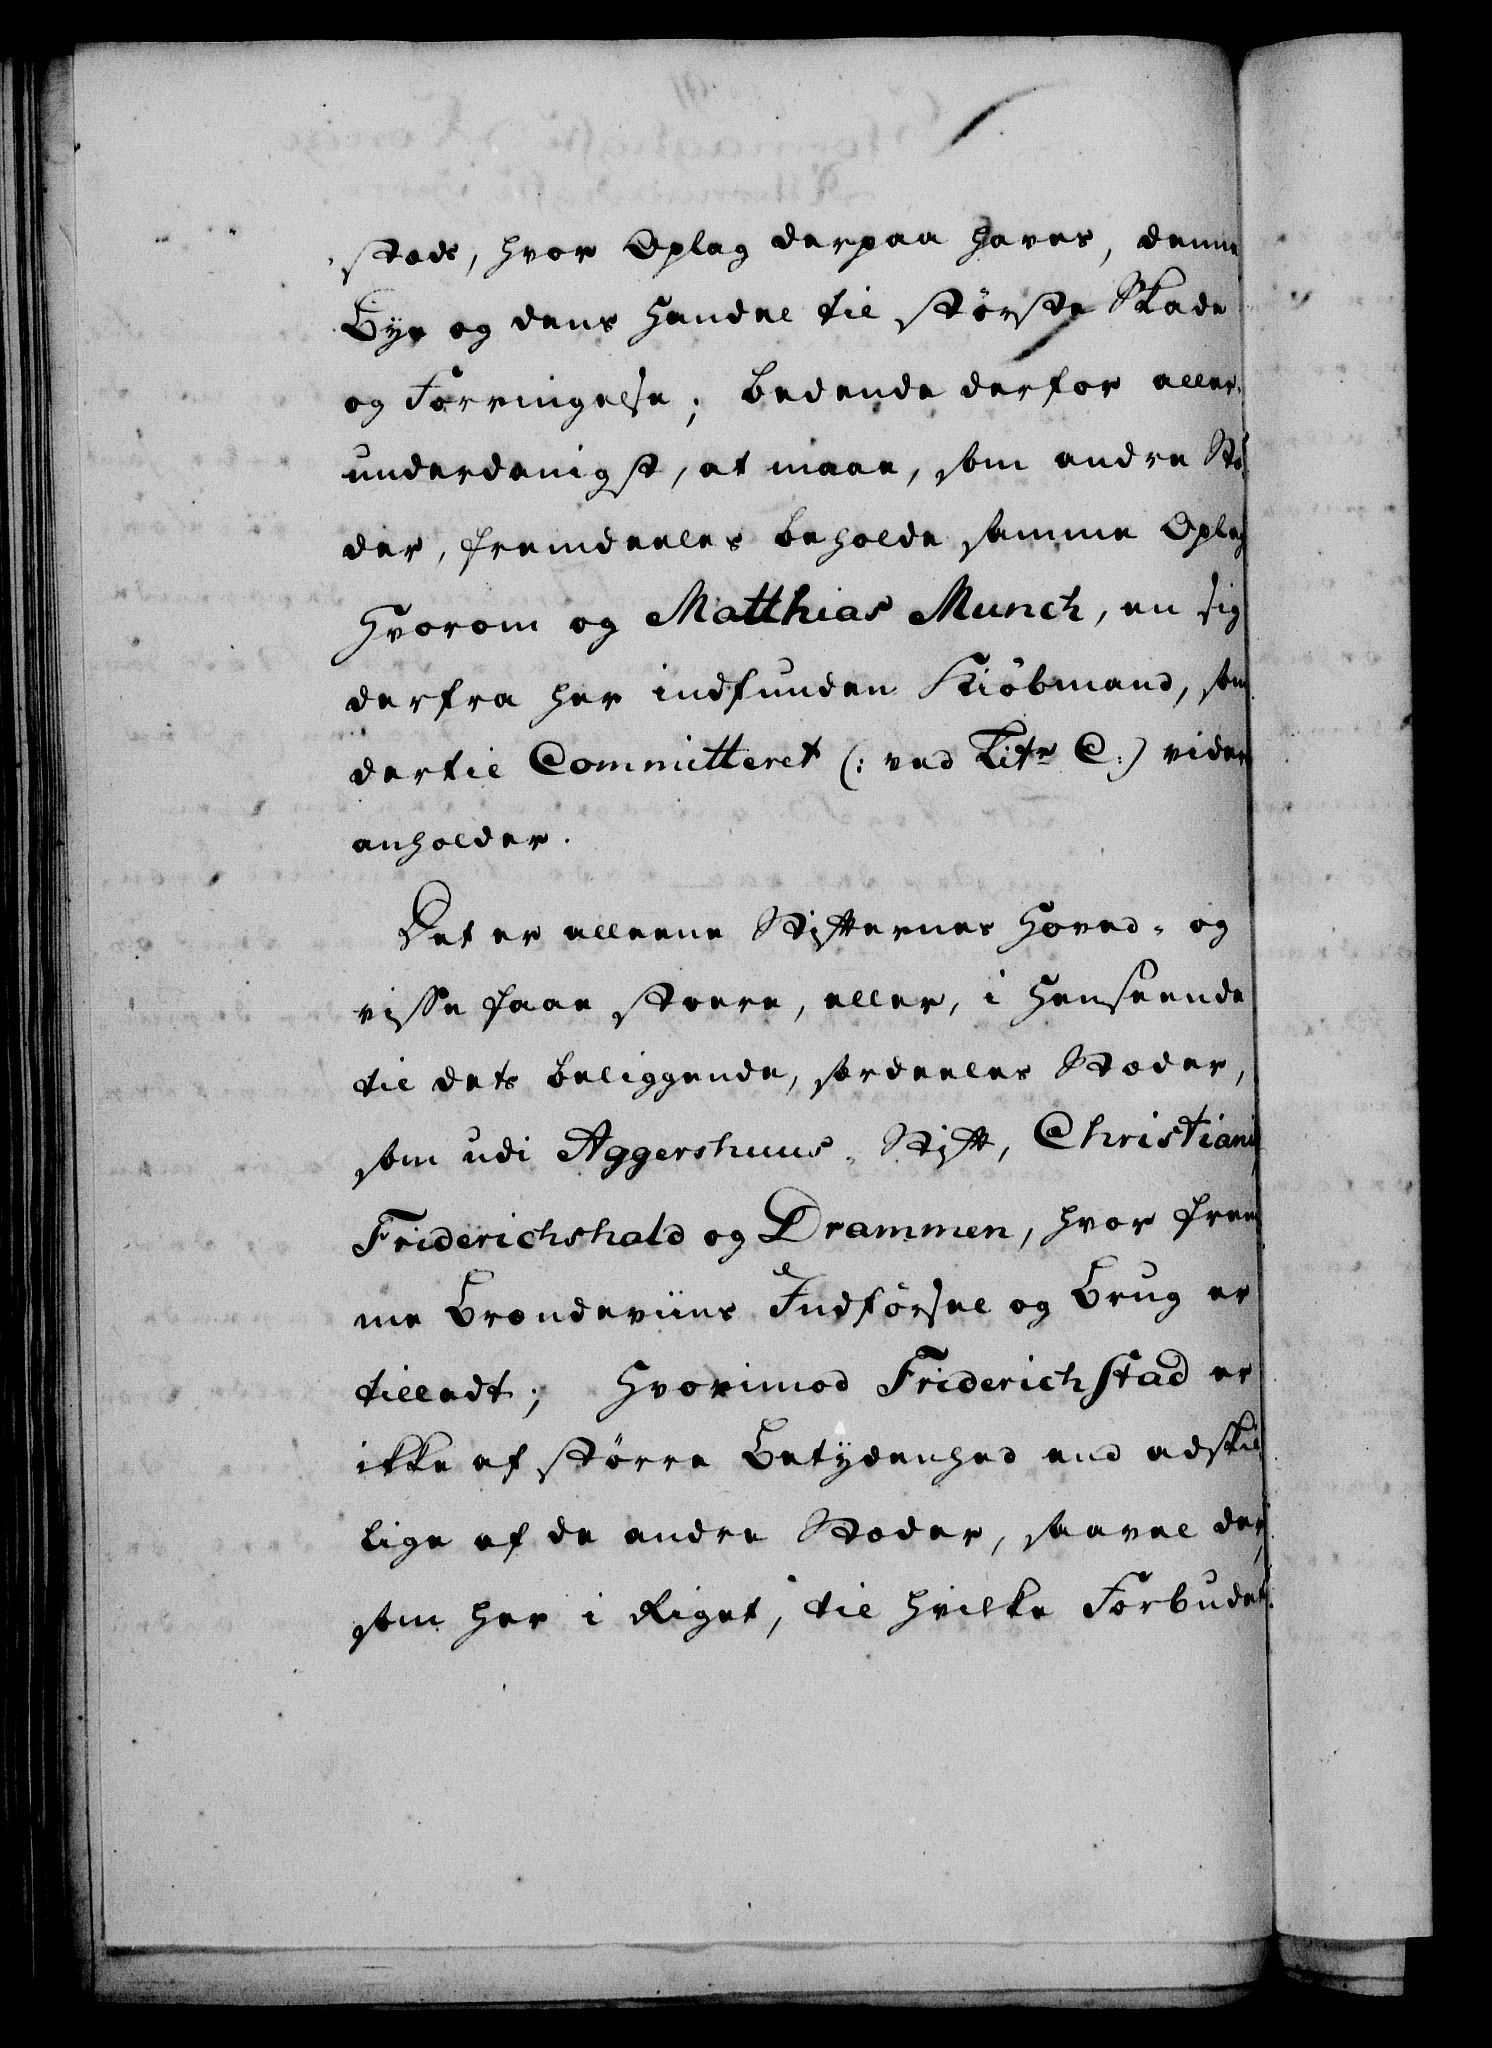 stæds, hvor Oplag derpaa haves, denne
Bye og dens Handel til største Skade
og Forringelse; bedende derfor aller-
underdanigst, at maae, som andre Stæ-
der, fremdeeles beholde samme Oplag
Hvorom og Matthias Munch, en sig
derfra her indfunden Kiøbmand, som
dertil Committeret (: ved Litr C:) videre
anholder.
Det er alleene Stifternes Hoved- og
visse faae stoere, eller, i Henseende
til dets beliggende, særdeeles Stæder,
som udi Aggershuus-Stift, Christiania
Friderichshald og Drammen, hvor frem-
me Brændeviins Indførsel og Brug er
tilladt; Hvorimod Friderichstad er
ikke af større Betydenhed end adskil-
lige af de andre Stæder, saavel der,
som her i Riget, til hvilke Forbudet